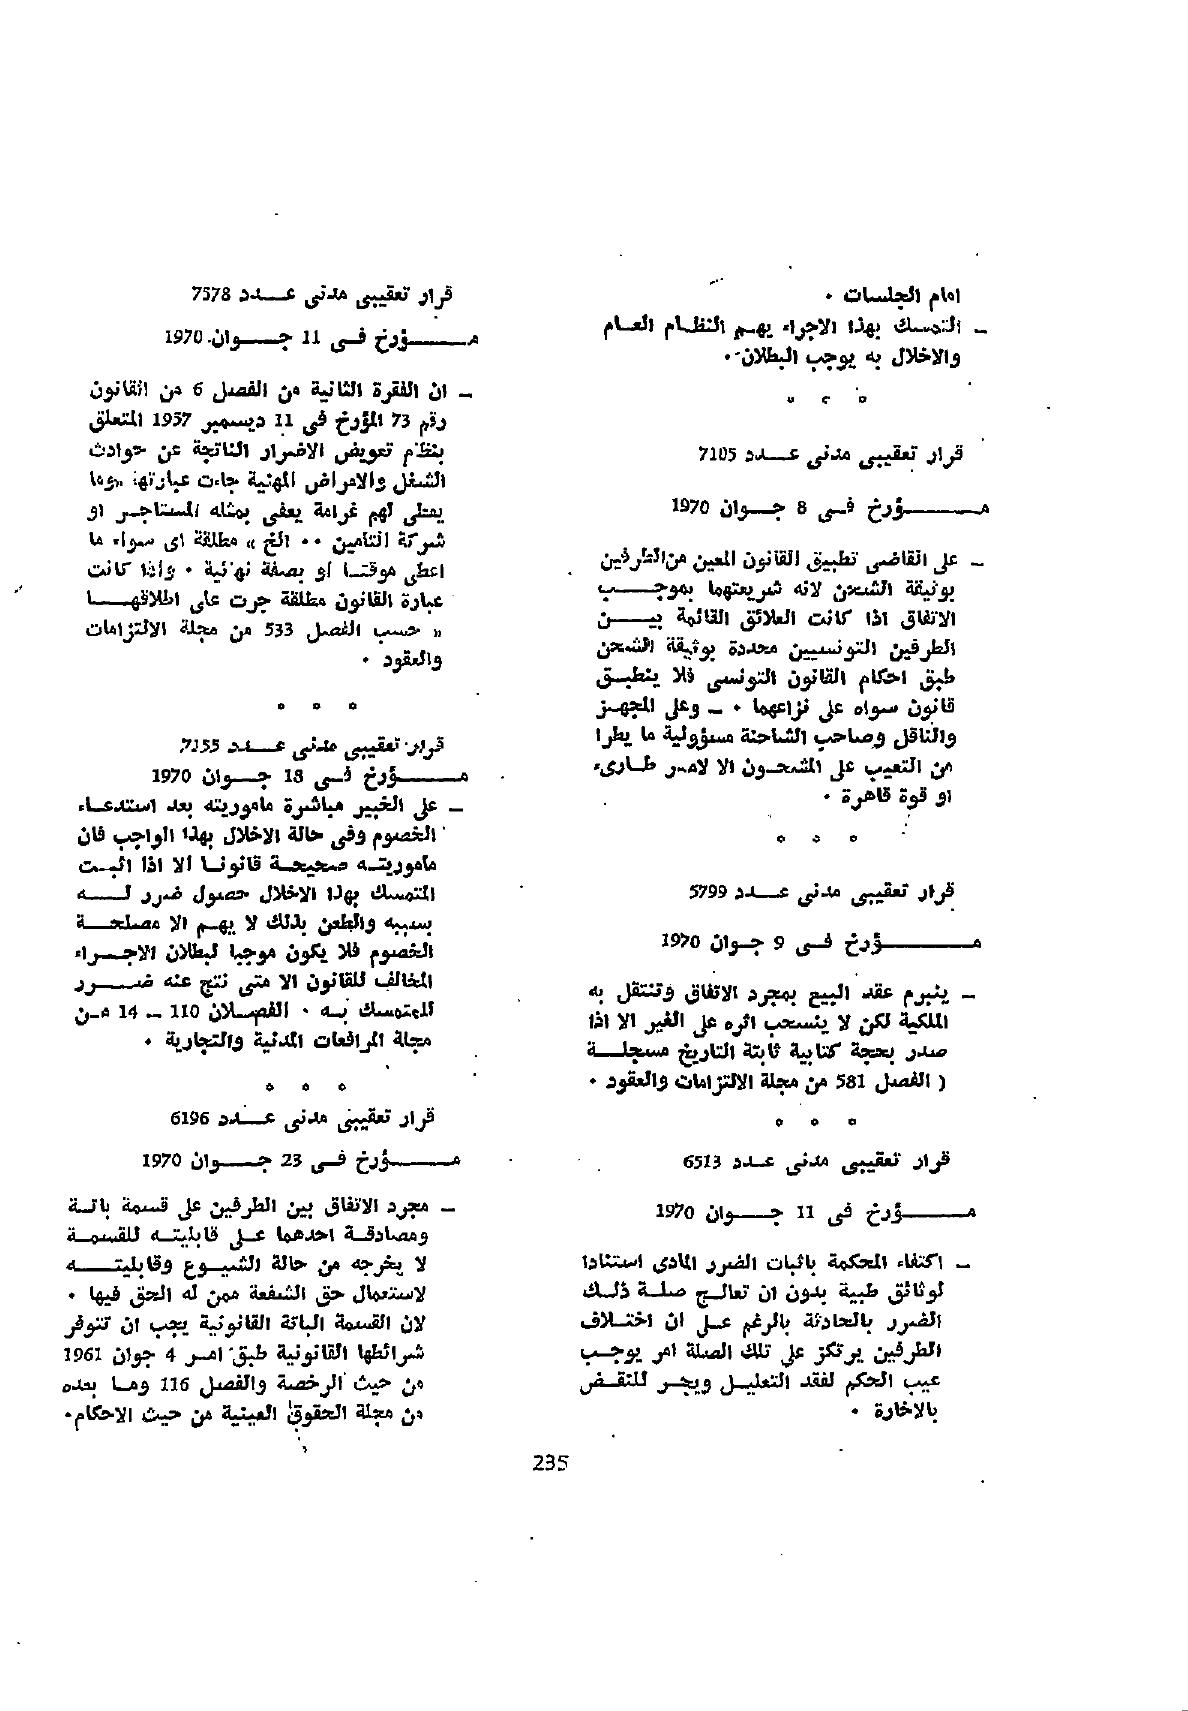 امام الجلسات ٠
ـ التمسك بهذا الاجراء يهم النظام العام
والاخلال به يوجب البطلان ٠
٥ ٥ ٥
قرار تعقيبى مدنى عـــدد 7105
مـــــــؤرخ فـى 8 جــوان 1970
ـ على القاضى تطبيق القانون المعين من الطرفين
بوثيقة الشحن لانه شريعتهما بموجـــب
الاتفاق اذا كانت العلائق القائمة بيـــن
الطرفين التونسيين محددة بوثيقة الشحن
طبق احكام القانون التونسى فلا ينطبـق
قانون سواه على نزاعهما ٠ ـ وعلى المجهـز
والناقل وصاحب الشاحنة مسؤولية ما يطرا
من التعيب على المشحـون الا لامـر طـارىء
او قوة قاهرة ٠
٥ ٥ ٥
قرار تعقيبى مدنى عـــدد 5799
مـــــــؤرخ فـى 9 جـوان 1970
ـ ينبرم عقد البيع بمجرد الاتفاق وتنتقل به
الملكية لكن لا ينسحب اثره على الغير الا اذا
صدر بحجة كتابية ثابتة التاريخ مسجلـــة
( الفصل 581 من مجلة الالتزامات والعقود ٠
٥ ٥ ٥
قرار تعقيبى مدنى عـدد 6513
مـــــــؤرخ فى 11 جـــوان 1970
ـ اكتفاء المحكمة باثبات الضرر المادى استنادا
لوثائق طبية بدون ان تعالـج صلـة ذلـك
الضرر بالحادثة بالرغم عـلى ان اختـلاف
الطرفين يرتكز على تلك الصلة امر يوجـب
عيب الحكم لفقد التعليـل ويجـر للنقـض
بالاحارة ٠
قرار تعقيبى مدنى عـــدد 7578
مـــــــؤرخ فـى 11 جـــوان 1970
ـ ان الفقرة الثانية من الفصل 6 من القانون
رقم 73 المؤرخ فى 11 ديسمبر 1957 المتعلق
بنظام تعويض الاضرار الناتجة عن حوادث
الشغل والامراض المهنية جاءت عبارتها: «وما
يعطى لهم غرامة يعفى بمثله المستاجـر او
شركة التامين ٠٠ الخ » مطلقة اى سواء ما
اعطى موقتـا او بصفة نهائية ٠ واذا كانت
عبارة القانون مطلقة جرت على اطلاقهـــا
« حسب الفصل 533 من مجلة الالتزامات
والعقود ٠
٥ ٥ ٥
قرار تعقيبى مدنى عـــدد 7155
مـــــــؤرخ فـى 18 جــوان 1970
ـ على الخبير مباشرة ماموريته بعد استدعـاء
الخصوم وفى حالة الاخلال بهذا الواجب فان
ماموريتـه صحيحـة قانونـا الا اذا اثبـت
المتمسك بهذا الاخلال حصول ضرر لـــه
بسببه والطعن بذلك لا يهـم الا مصلحـــة
الخصوم فلا يكون موجبا لبطلان الاجـــراء
المخالف للقانون الا متى نتج عنه ضـــرر
للمتمسك بـه ٠ الفصـلان 110 ـ 14 مـن
مجلة المرافعات المدنية والتجارية ٠
٥ ٥ ٥
قرار تعقيبى مدنى عـــدد 6196
مـــــــؤرخ فـى 23 جـــوان 1970
ـ مجرد الاتفاق بين الطرفين على قسمة باتـة
ومصادقـة احدهما عـلى قابليتـه للقسمـة
لا يخرجه من حالة الشيـوع وقابليتـــه
لاستعمال حق الشفعة ممن له الحق فيها ٠
لان القسمة الباتة القانونية يجب ان تتوفر
شرائطها القانونية طبق امـر 4 جوان 1961
من حيث الرخصة والفصل 116 ومـا بعده
من مجلة الحقوق العينية من حيث الاحكام٠
235